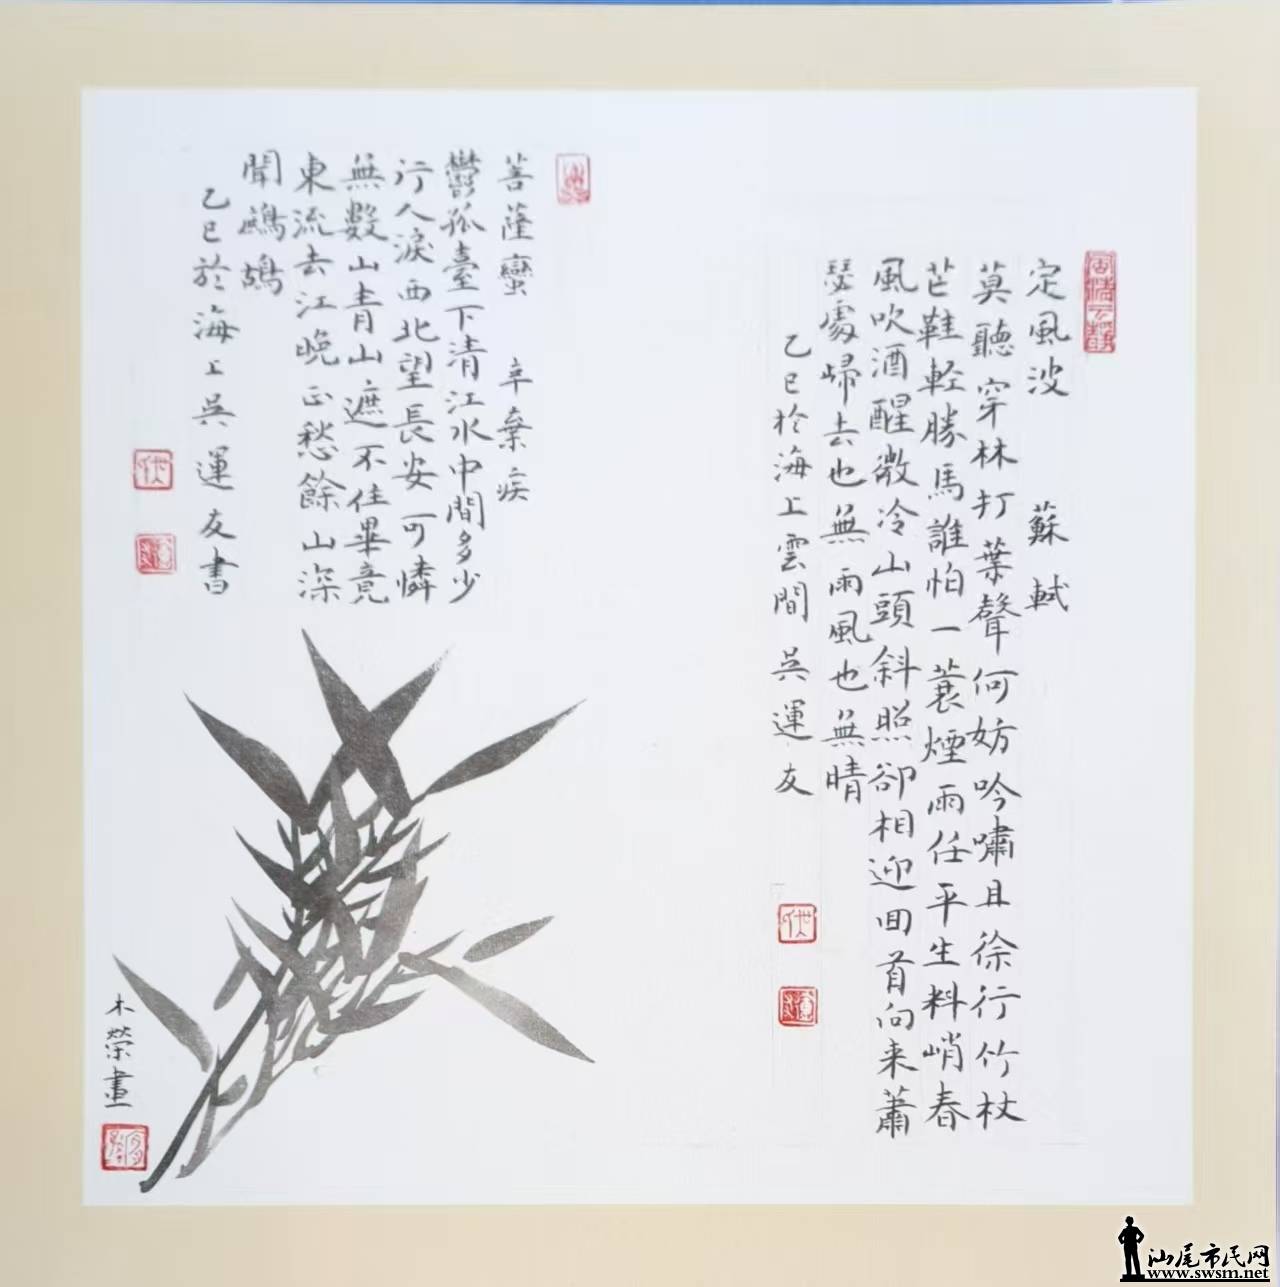 定風波 蘇軾
莫聽穿林打葉聲何妨吟嘯且徐行竹杖
芒鞋輕勝馬誰怕一蓑煙雨任平生料峭春
風吹酒醒微冷山頭斜照卻相迎回首向来蕭
瑟處歸去也無雨風也無晴
乙巳於海上雲間吳運友
菩薩蠻 辛棄疾
鬱孤臺下清江水中間多少
行人淚西北望長安可憐
無數山青山遮不住畢竟
東流去江晚正愁餘山深
聞鷓鴣
乙巳於海上吳運友書
木榮畫
汕尾市民网
www.swsm.net